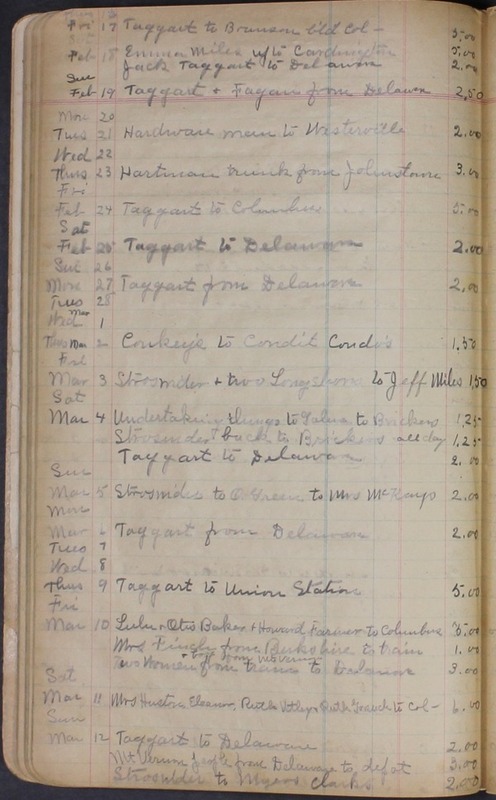 Fri 17 Taggart to Branson Old Col - 5.00
Feb 18 Emma Miles up to Cardington 5.00
Jack Taggart to Delaware 2.00
Sun
Feb 19 Taggart + Fagan from Delaware 2.50
Mon 20
Tues 21 Hardware man to Westerville 2.00
Wed 22
Thurs 23 Hartman trunk from Johnstown 3.00
Fri
Feb 24 Taggart to Columbus 5.00
Sat
Feb 25 Taggart to Delaware 2.00
Sun 26
Mon 27 Taggart from Delaware 2.00
Tues 28
Wed Mar 1
Thurs Mar 2 to Condit 1.50
Fri
Mar 3 Strosnider + two to Jeff Miles 1.50
Sat
Mar 4 Undertaking things to Galena to Brickers 1.25
Strosnider back to Brickers all day 1.25
Taggart to Delaware 2.00
Sun
Mar 5 Strosnider to Green to Mrs McKays 2.00
Mon
Mar 6 Taggart from Delaware 2.00
Tues 7
Wed 8
Thus 9 Taggart to Union Station 5.00
Fri
Mar 10 Lulu + Otis Baker + Howard Farmer to Columbus 5.00
Mrs from Berkshire to train 1.00
Two Women from train to Delaware 3.00
Sat
Mar 11 Mrs Huston, Eleanor, Ruth Ruth to Col - 6.00
Sun
Mar 12 Taggart to Delaware 2.00
Mt. Vernon people from Delaware to depot 3.00
Strosnider to Myers Clarks 2.00